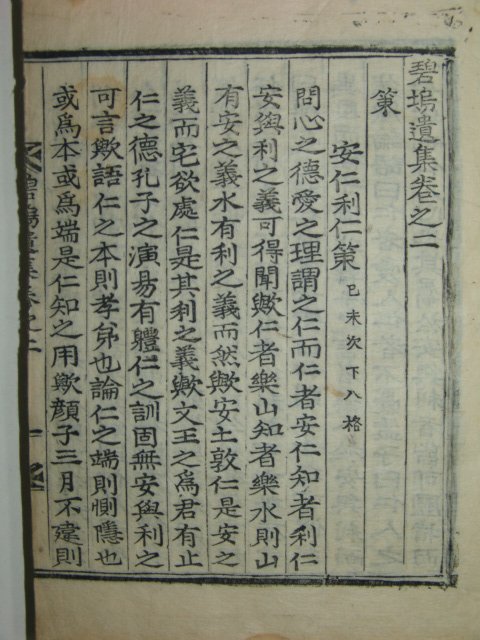 碧塢遺集卷之二
策
安仁利仁策 己未次下八格
問心之德愛之理謂之仁而仁者安仁知者利仁
安與利之義可得聞歟仁者樂山知者樂水則山
有安之義水有利之義而然歟安土敦仁是安之
義而宅欲處仁是其利之義歟文王之爲君有止
仁之德孔子之演易有軆仁之訓固無安與利之
可言歟語仁之本則孝弟也論仁之端則惻隱也
或爲本或爲端是仁知之用歟顔子三月不違則
碧塢遺集卷之二
一